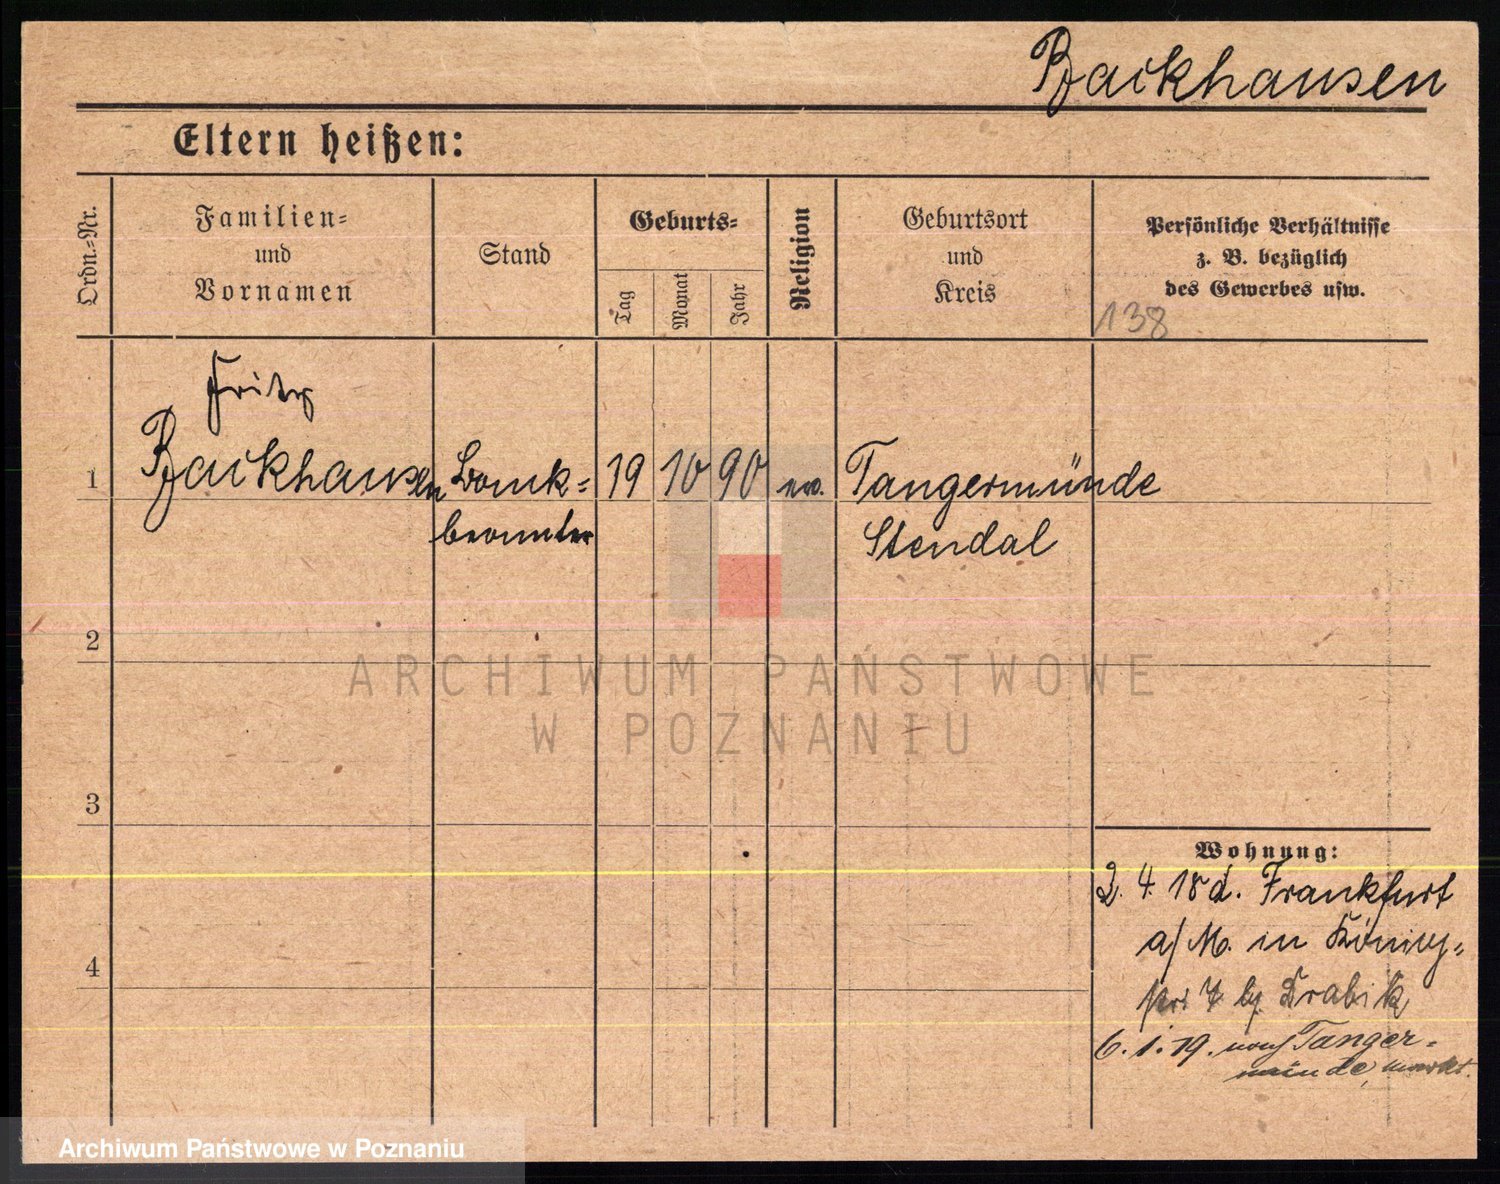 Backhausen
Eltern heißen:
Ordn.-Nr.
Familien-
und
Vornamen
Stand
Geburts-
Tag
Monat
Jahr
Religion
Geburtsort
und
Kreis
Persönliche Verhältnisse
z. B. bezüglich
des Gewerbes usw.
138
Fritz
1 Backhausen Bank- 19 10 90 ev. Tangermünde
beamter Stendal
2
3
4
Wohnung:
2. 4. 18 d. Frankfurt
a/M. in König-
7 Drabik
6. 1. 19. nach Tanger-
münde
ARCHIWUM PAŃSTWOWE
W POZNANIU
Archiwum Państwowe w Poznaniu